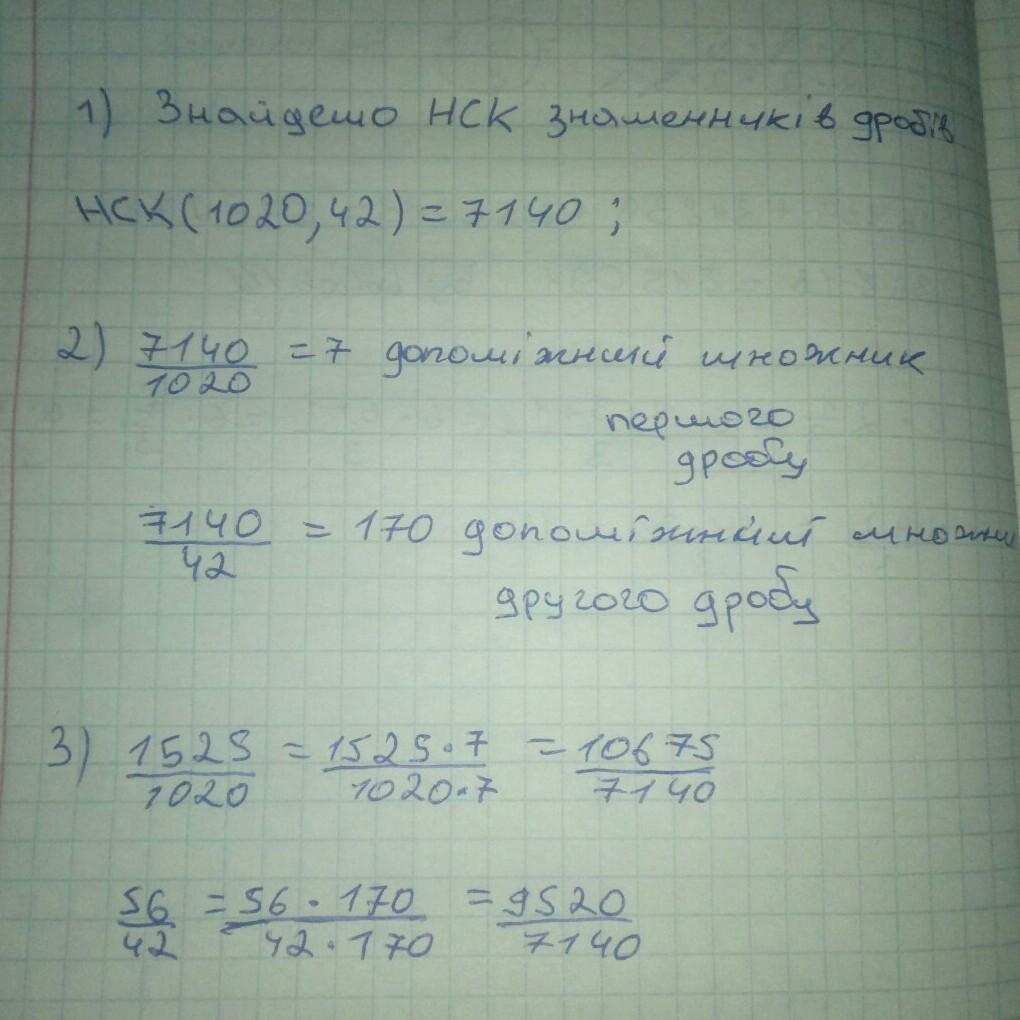 1) Знайдемо НСК знаменників дробів
НСК(1020,42) = 7140 ;
2) 7140/1020 = 7 допоміжний множник
першого
дробу
7140/42 = 170 допоміжний множни
другого дробу
3) 1525/1020 = 1525·7/1020·7 = 10675/7140
56/42 = 56·170/42·170 = 9520/7140